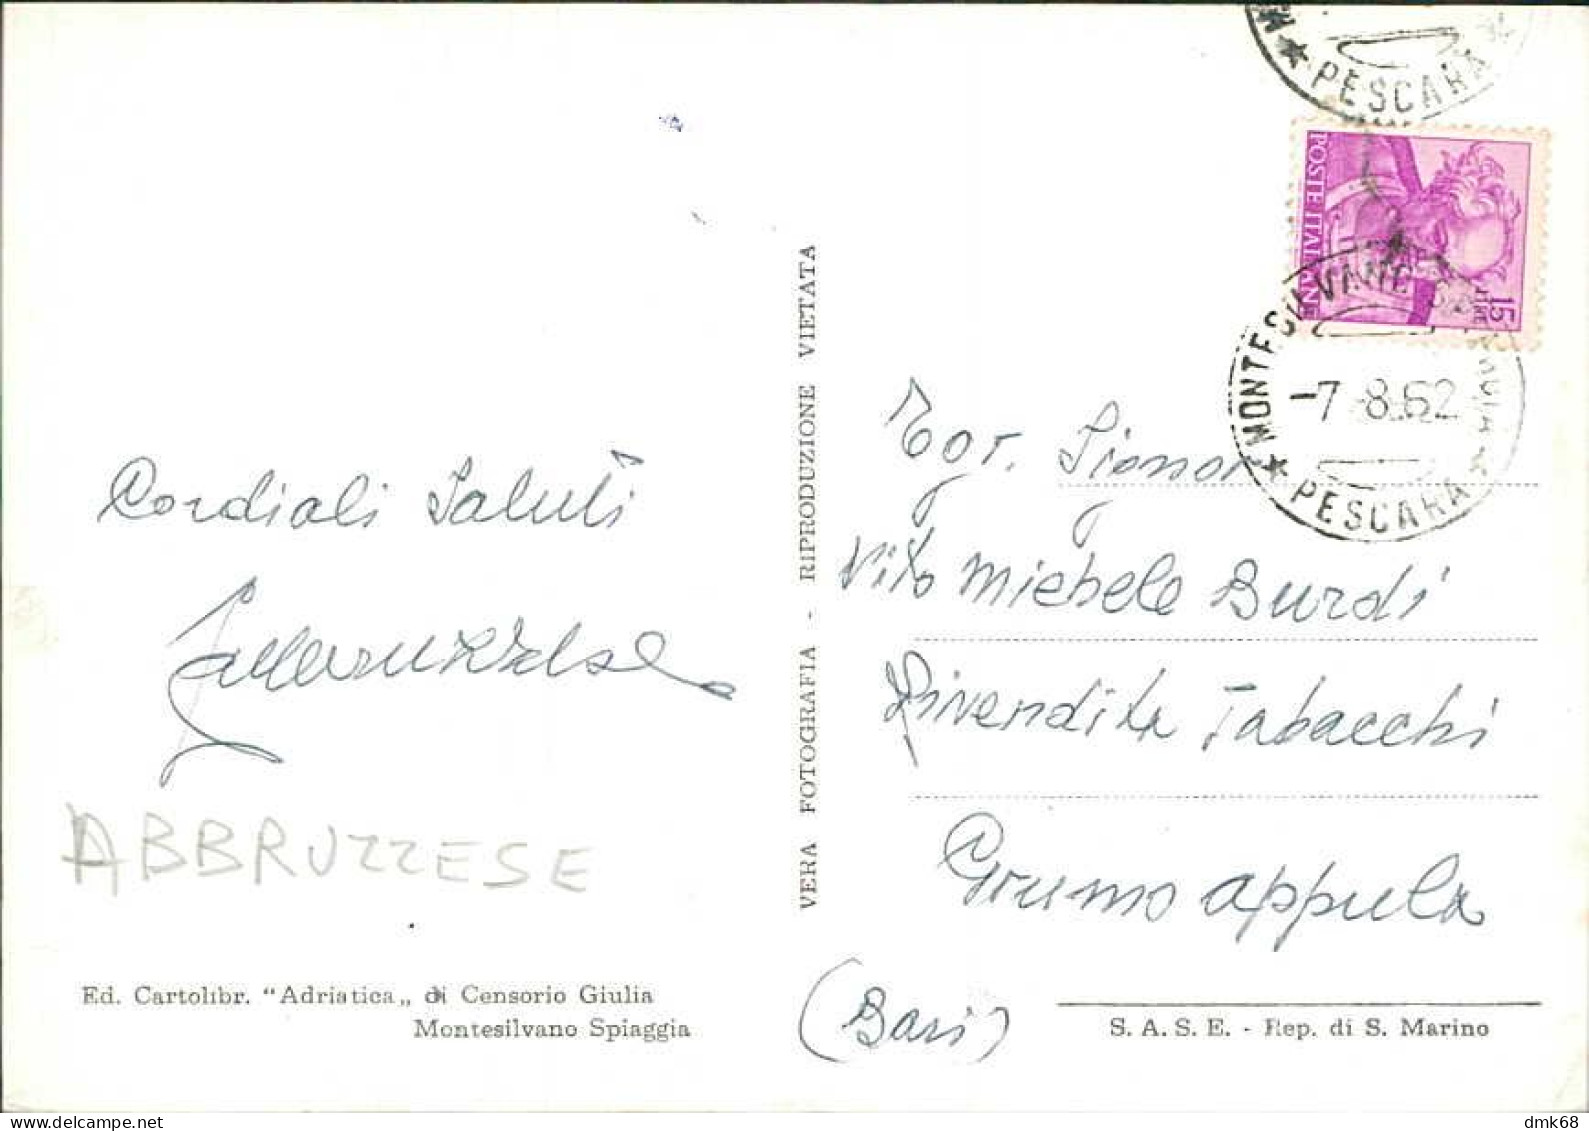 PESCARA
POSTE ITALIANE
LIRE 15
MONTESILVANO SPIAGGIA
-7.8.62
★ PESCARA ★
Cordiali Saluti
ABBRUZZESE
Ed. Cartolibr. "Adriatica„ di Censorio Giulia
Montesilvano Spiaggia
VERA FOTOGRAFIA - RIPRODUZIONE VIETATA
Egr. Signor
Vito Michele Burdi
Rivendita Tabacchi
Grumo appula
(Bari)
S. A. S. E. - Rep. di S. Marino
dmk68